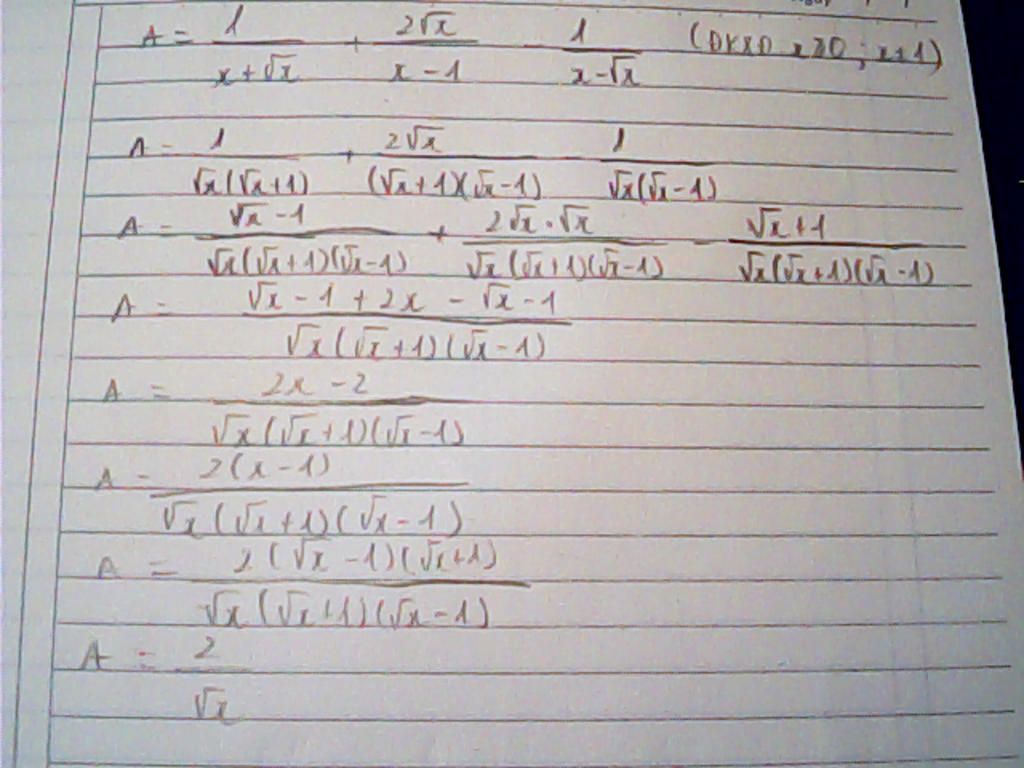 A = 1/(x+√x) + 2√x/(x-1) - 1/(x-√x) (ĐKXĐ x≥0; x≠1)
A = 1/(√x(√x+1)) + 2√x/((√x+1)(√x-1)) - 1/(√x(√x-1))
A = (√x-1)/(√x(√x+1)(√x-1)) + (2√x.√x)/(√x(√x+1)(√x-1)) - (√x+1)/(√x(√x+1)(√x-1))
A = (√x-1+2x-√x-1)/(√x(√x+1)(√x-1))
A = (2x-2)/(√x(√x+1)(√x-1))
A = 2(x-1)/(√x(√x+1)(√x-1))
A = 2(√x-1)(√x+1)/(√x(√x+1)(√x-1))
A = 2/√x